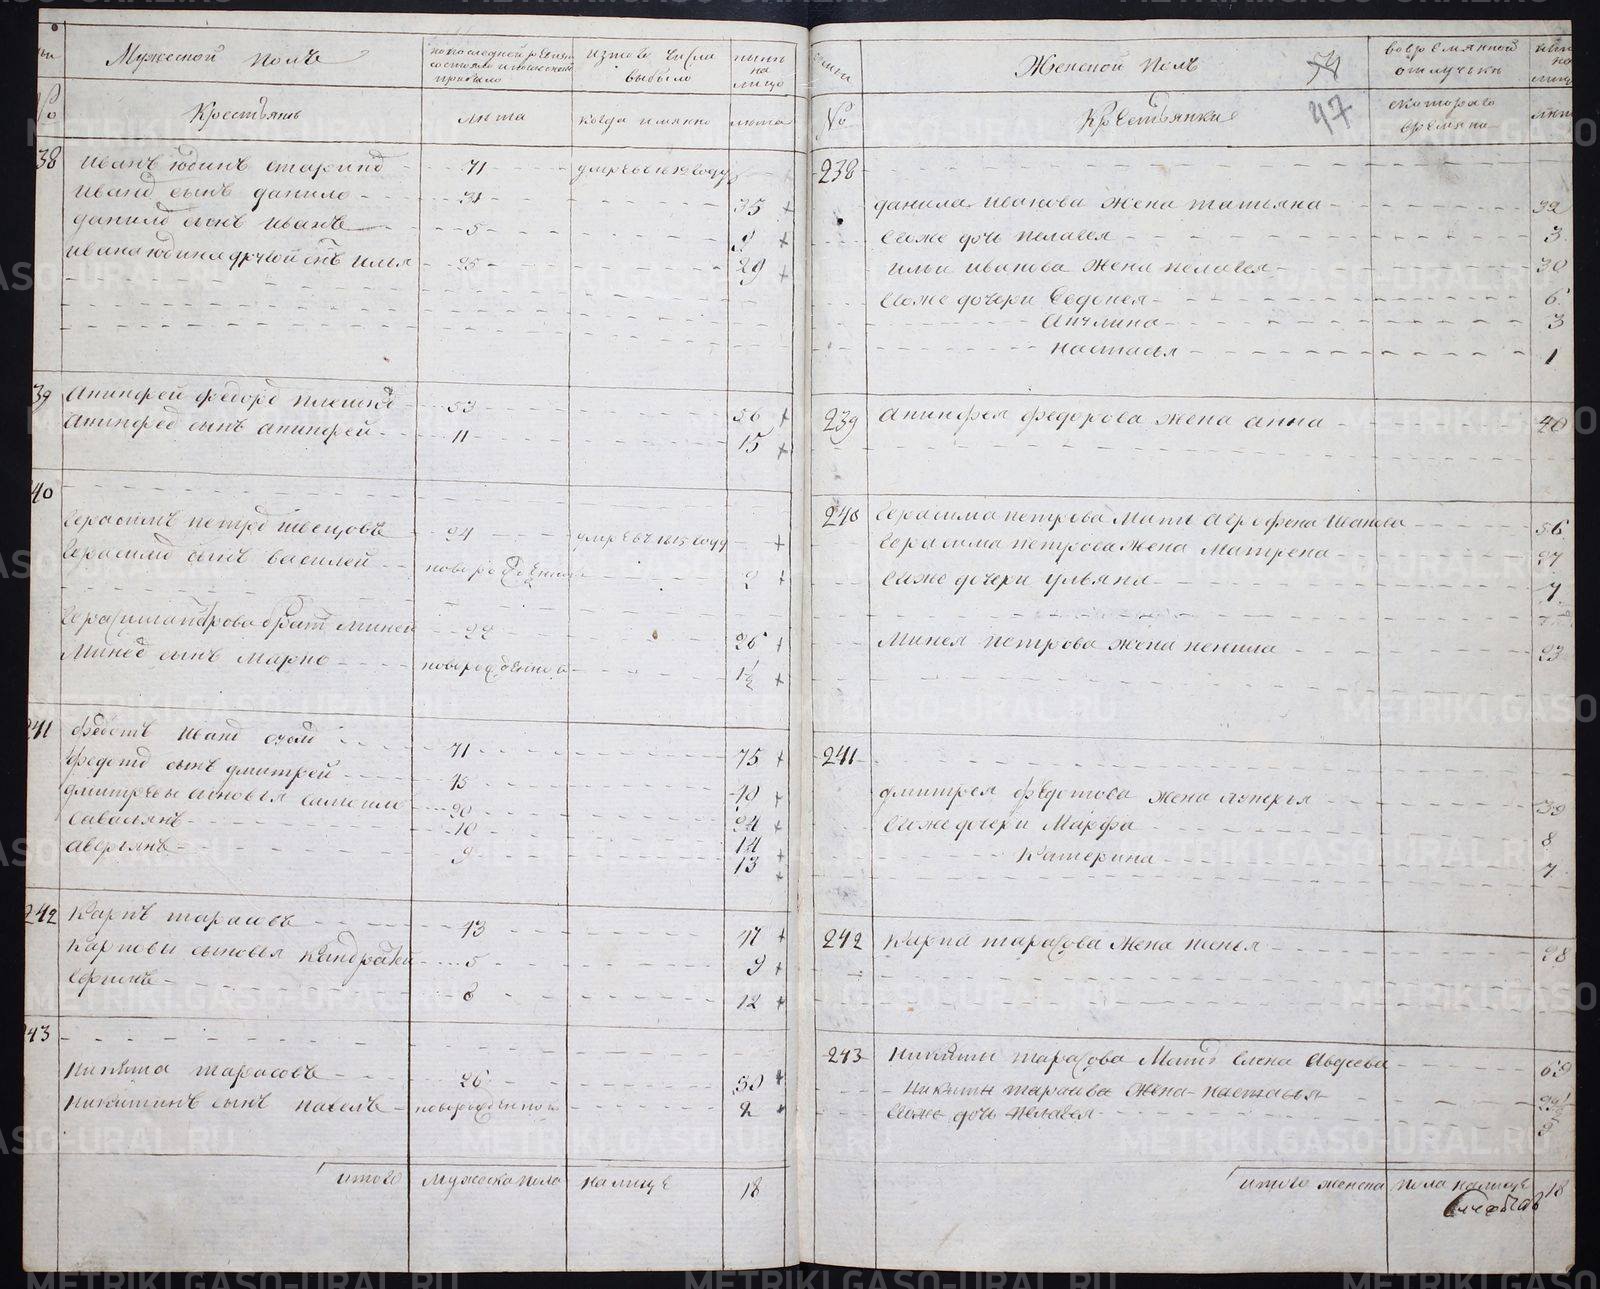 Мужеской полъ
по последней ревизи состояло и после оной прибыло
изтово числа выбыло
нынѣ на лицо
№
Крестьянъ
лѣта
когда имянно
лѣта
38
Иванъ Юдинъ
71
умре въ 1812 году
Иванов сынъ Данило
31
35
Данилов сынъ Иванъ
5
9
Ивана Юдина другой сынъ Илья
25
29
39
Анинфей Федоров
53
56
Анинфев сынъ Анинфей
11
15
40
Герасимъ Петров Швецовъ
24
умре въ 1815 году
Герасимов сынъ Василей
новорожденной
2
Герасима Петрова брат Миней
22
26
Минев сынъ Марко
новорожденной
1½
241
Федотъ Иванов
71
75
Федотов сынъ Дмитрей
45
49
Дмитреевы сыновья
20
24
Савельянъ
10
14
Аверьянъ
9
13
242
Карпъ Тарасовъ
43
47
Карповы сыновья Кандратей
5
9
Ефимъ
8
12
243
Никита Тарасовъ
26
30
Никитинъ сынъ Павелъ
новорожденной
2
итого мужеска пола налице 18
Женской полъ
47
вовремянной отлучьки
№
Крестьянки
скотораго времяни
238
Данила Иванова жена Татьяна
32
Ево же дочь Пелагея
3
Ильи Иванова жена Пелагея
30
Ево же дочери Федосея
6
Акулина
3
Настасья
1
239
Анинфея Федорова жена Анна
40
240
Герасима Петрова мать Агрофена Иванова
56
Герасима Петрова жена Матрена
27
Ево же дочери Ульяна
7
Минея Петрова жена
23
241
Дмитрея Федотова жена Лукерья
39
Ево же дочери Марфа
8
Катерина
7
242
Карпа Тарасова жена
38
243
Никиты Тарасова мать Елена Авдеева
69
Никиты Тарасова жена Настасья
Ево же дочь Пелагея
итого женска пола налице 18
METRIKI.GASO-URAL.RU